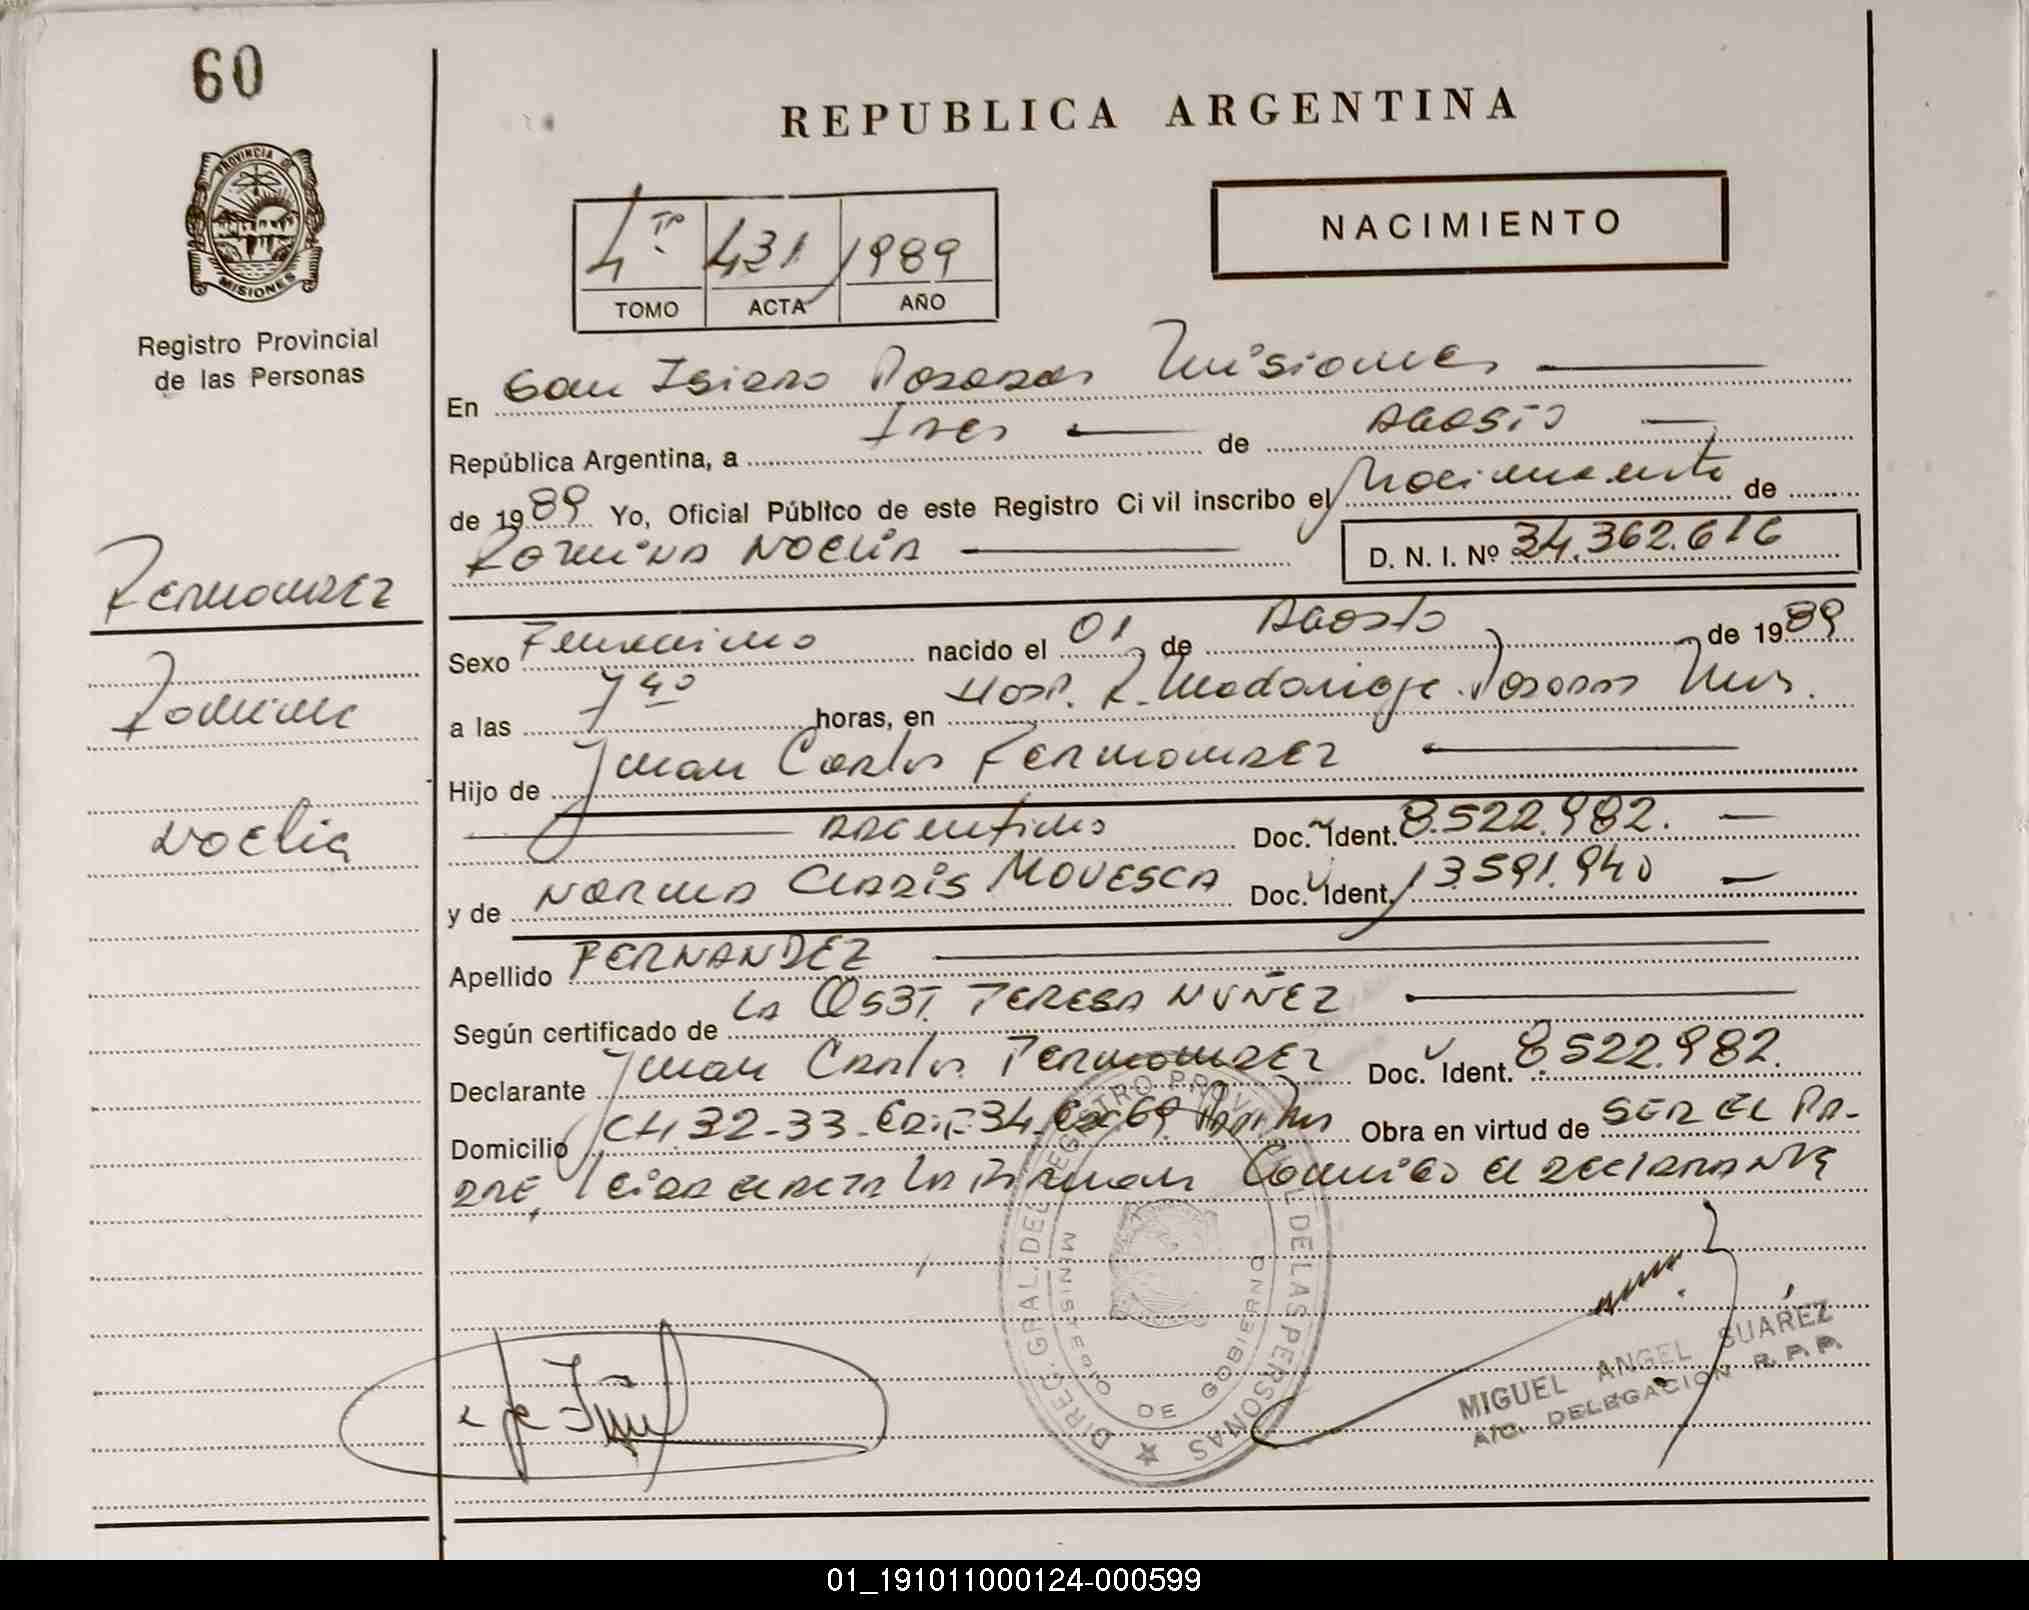 60
REPUBLICA ARGENTINA
PROVINCIA DE
MISIONES
Registro Provincial
de las Personas
4 To 431 1989
TOMO ACTA AÑO
NACIMIENTO
En San Isidro Posadas Misiones
República Argentina, a Tres de Agosto
de 1989 Yo, Oficial Público de este Registro Civil inscribo el Nacimiento de
Romina Noelia D. N. I. Nº 34.362.616
Fernandez
Romina
Noelia
Sexo Femenino nacido el 01 de Agosto de 1989
a las 7 40 horas, en Hosp. R. Madariaga Posadas Mnes.
Hijo de Juan Carlos Fernandez
Argentino Doc. Ident. 8.522.982.
y de Norma Claris MOVESCA Doc. Ident. 13.591.940
Apellido FERNANDEZ
Según certificado de LA OBST. TERESA NUÑEZ
Declarante Juan Carlos Fernandez Doc. Ident. 8.522.982.
Domicilio CH. 32-33. Edif. 34. 69 Obra en virtud de SER EL PA-
DRE, leida el acta la firman Conmigo el declarante
DIREC. GRAL. DEL REGISTRO PROVINCIAL DE LAS PERSONAS
MINISTERIO DE GOBIERNO
MIGUEL ANGEL SUÁREZ
A/C. DELEGACION R. P. P.
01_191011000124-000599